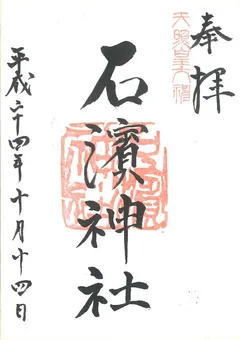 奉拝
天照皇大神
石濱神社
平成二十四年十月十四日